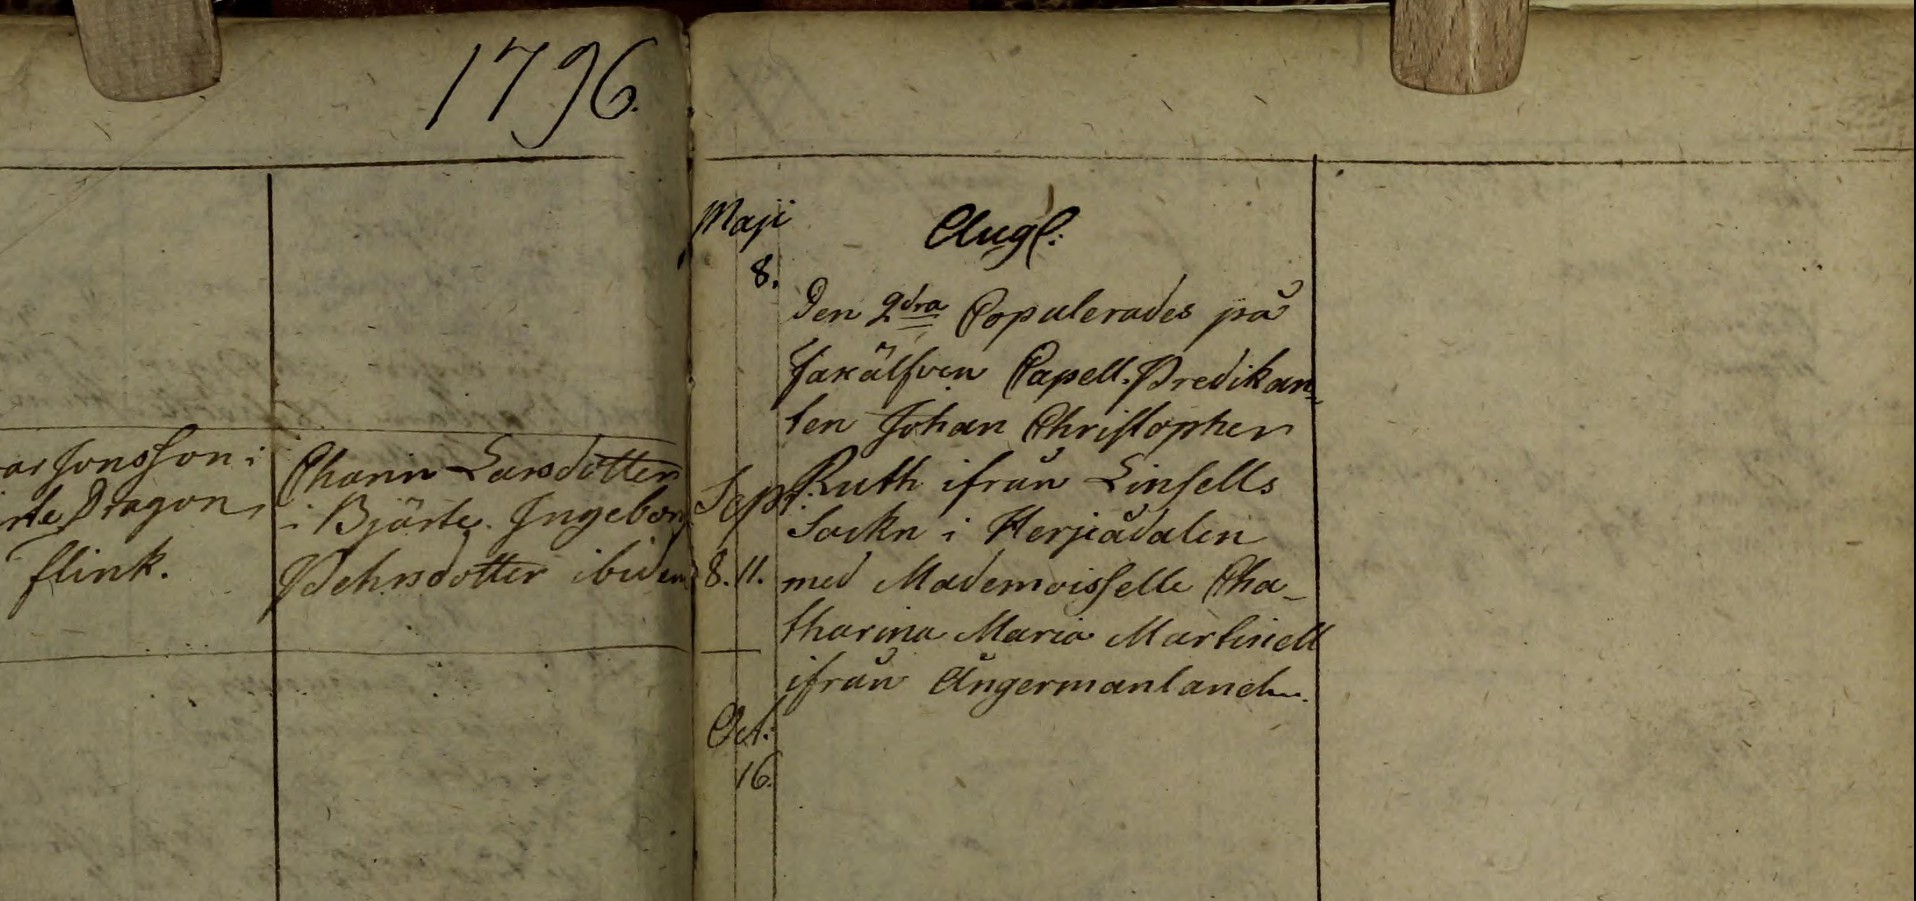 1796.
Jonsson i
Dragon
flink.
Charin Larsdotter
i Bjärte. Ingeborg
Pehrsdotter ibidem
Maji
8.
Sept:
8. 11.
Oct:
16.
Augl:
Den 2dra Copulerades på
Capell. Predikan-
ten Johan Christopher
Ruth ifrån Linsells
Sockn i Herjeådalen
med Mademoisselle Cha-
tharina Maria Martinell
ifrån Ångermanland.